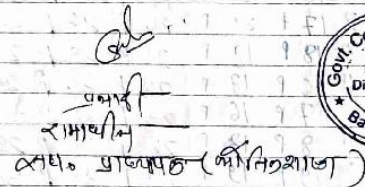 प्रभारी
रामाधीन
सहा. प्राध्यापक (भौतिकशास्त्र)
Govt. Co
Di
Ba